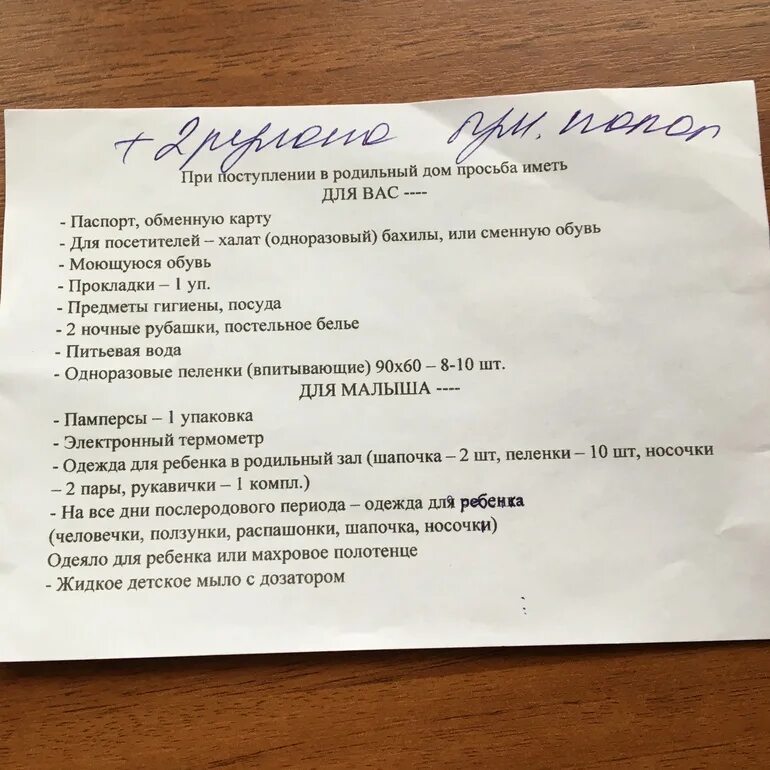 + 2 рулона бум. полот
При поступлении в родильный дом просьба иметь
ДЛЯ ВАС ----
- Паспорт, обменную карту
- Для посетителей – халат (одноразовый) бахилы, или сменную обувь
- Моющуюся обувь
- Прокладки – 1 уп.
- Предметы гигиены, посуда
- 2 ночные рубашки, постельное белье
- Питьевая вода
- Одноразовые пеленки (впитывающие) 90х60 – 8-10 шт.
ДЛЯ МАЛЫША ----
- Памперсы – 1 упаковка
- Электронный термометр
- Одежда для ребенка в родильный зал (шапочка – 2 шт, пеленки – 10 шт, носочки
– 2 пары, рукавички – 1 компл.)
- На все дни послеродового периода – одежда для ребенка
(человечки, ползунки, распашонки, шапочка, носочки)
Одеяло для ребенка или махровое полотенце
- Жидкое детское мыло с дозатором